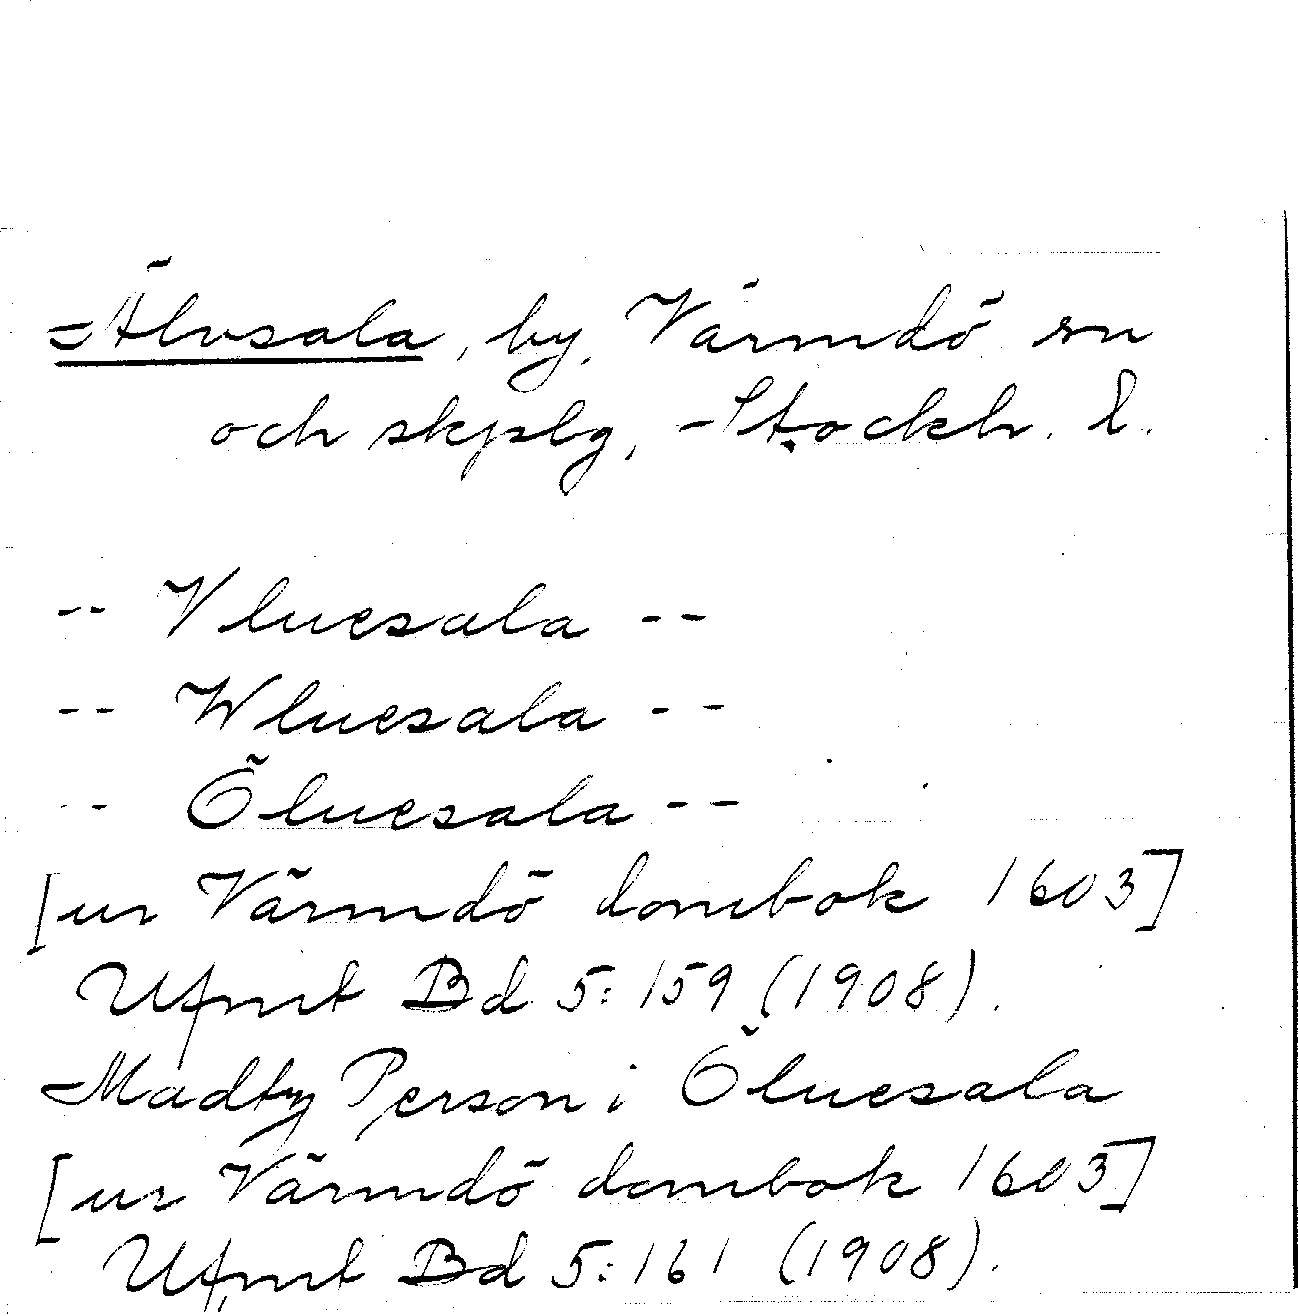 Älvsala, by, Värmdö sn
och skplg, Stockh. l.
-- Vluesala --
-- Wluesala --
-- Öluesala --
[ur Värmdö dombok 1603]
Ufmt Bd 5:159 (1908).
Madtz Person i Öluesala
[ur Värmdö dombok 1603]
Ufmt Bd 5:161 (1908).